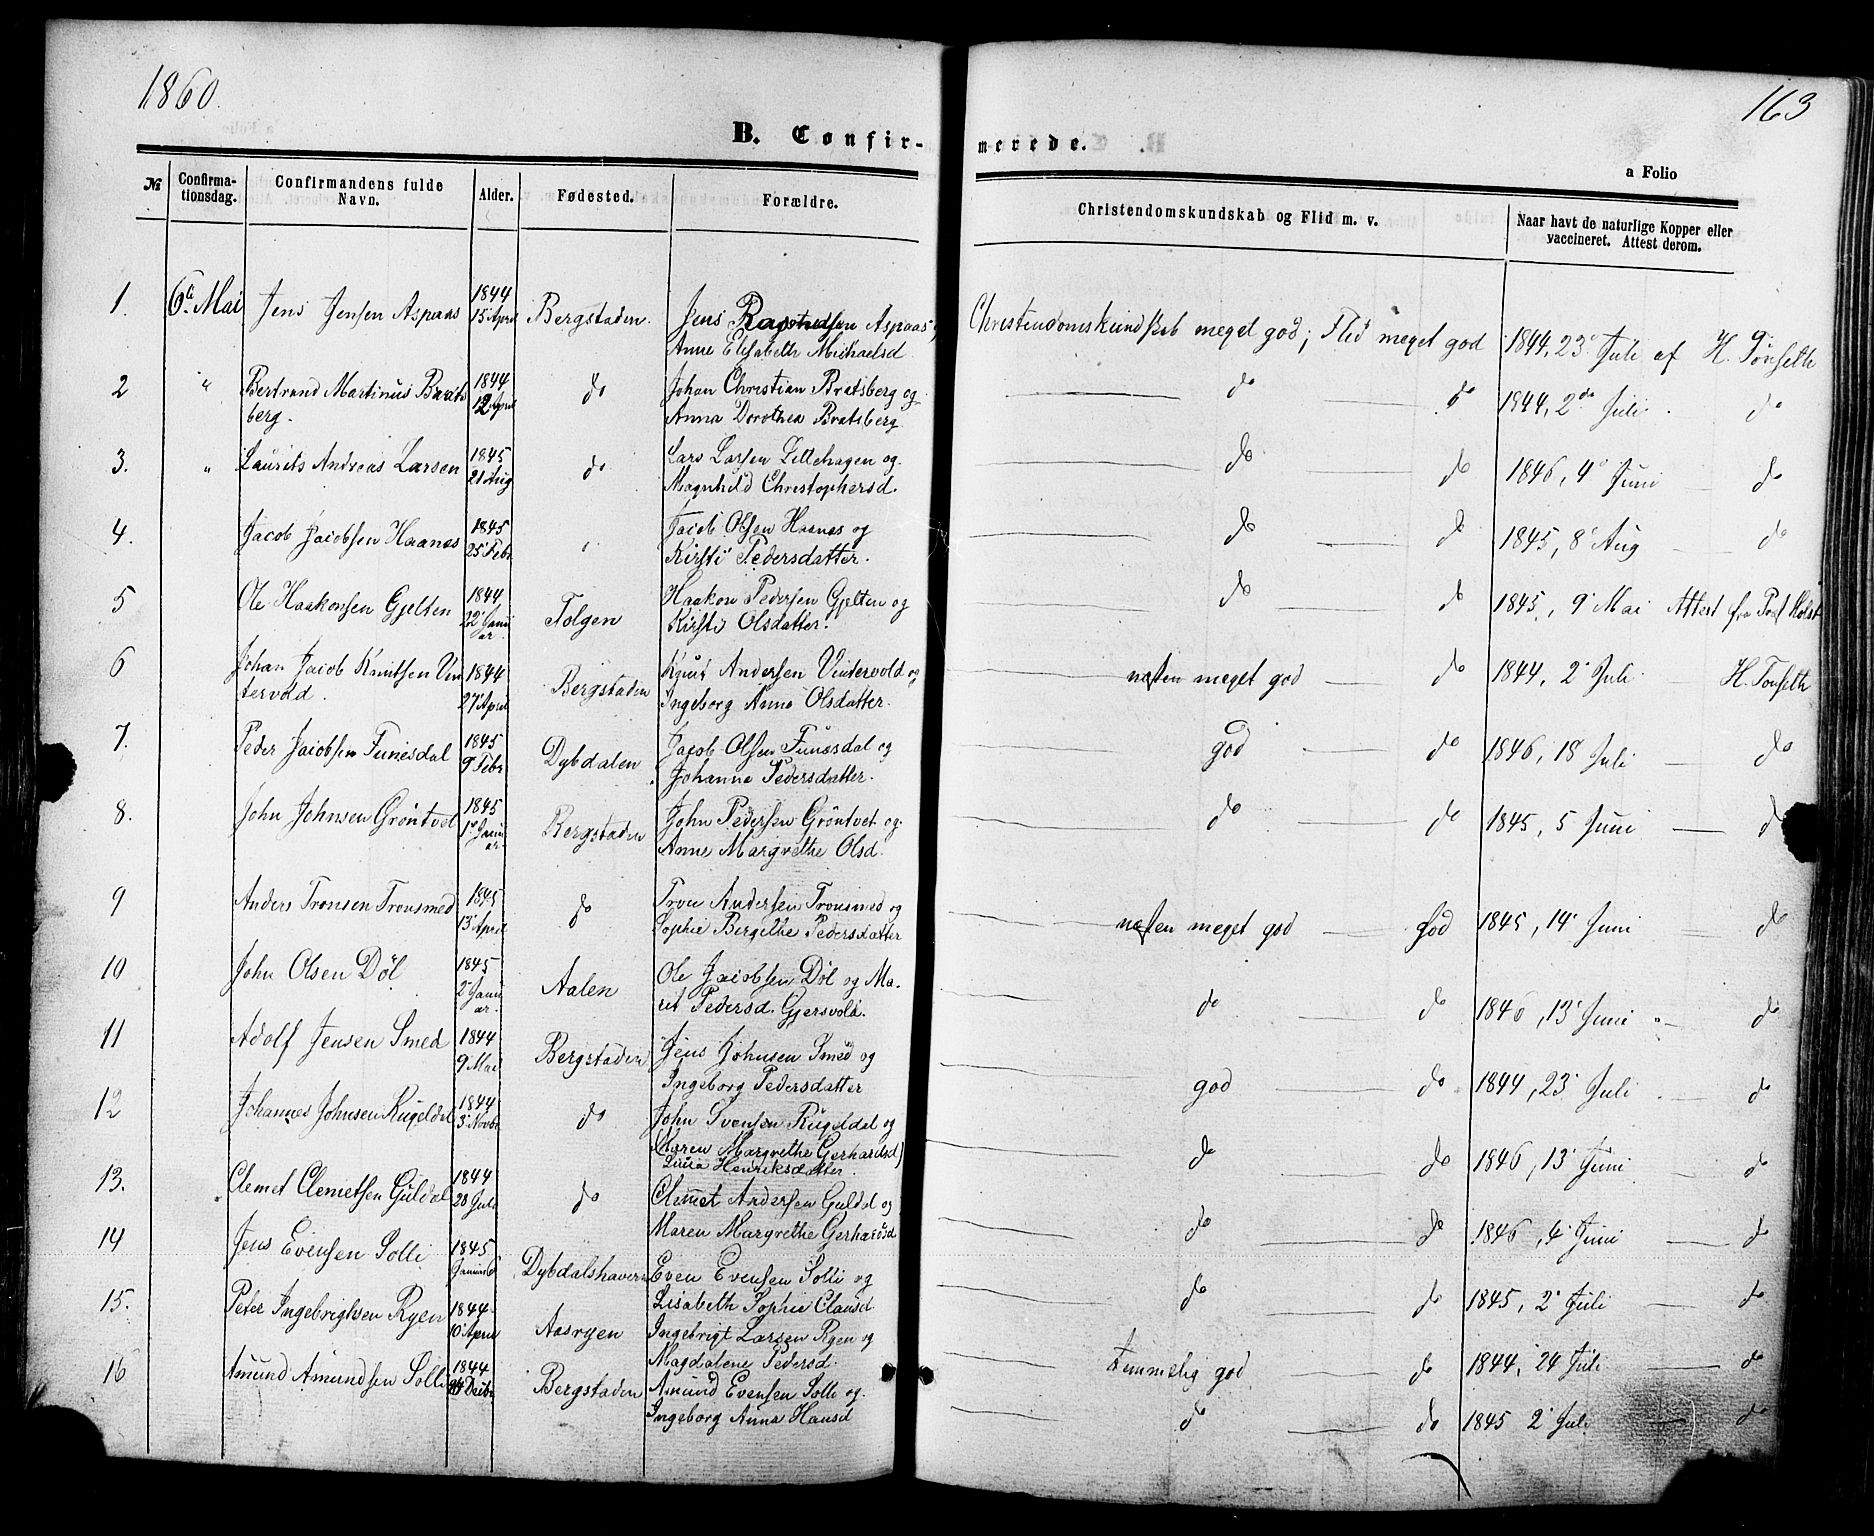 1860.
163
B. Confir-
merede.
a Folio
№
Confirma-
tionsdag.
Confirmandens fulde
Navn.
Alder.
Fødested.
Forældre.
Christendomskundskab og Flid m. v.
Naar havt de naturlige Kopper eller
vaccineret. Attest derom.
1. 6te Mai Jens Jensen Aspaas 1844 15 April Bergstaden. Jens Aspaas,
Anne Elisabeth Michaelsd
Christendomskundskab meget god; Flid meget god 1844, 23 Juli af H. Tønseth
2 " Bertrand Martinus Brats 1844 12 April do Johan Christian Bratsberg og
berg. Anna Dorothea Bratsberg
do do 1844, 2de Juli. do
3. " Laurits Andreas Larsen 1845 21 Aug do Lars Larsen Lillehagen og
Magnhild Christophersd.
do do 1846, 4 Juni do
4. Jacob Jacobsen Haanes 1845 25 Febr " Jacob Olsen Haanes og
Kirsti Pedersdatter.
do do 1845, 8 Aug do
5 Ole Haakonsen Gjelten 1844 22 Janu ar. Tolgen Haakon Pedersen Gjelten og
Kirsti Olsdatter.
do do 1845, 9 Mai Attest fra Holst
6 Johan Jacob Knutsen Vin 1844 27 April Bergstaden Knut Andersen Vintervold og
tervold. Ingeborg Anna Olsdatter.
næsten meget god do 1844, 2 Juli H. Tønseth
7. Peder Jacobsen Funesdal 1845 9 Febr Dybdalen Jacob Olsen Funesdal og
Johanna Pedersdatter.
god do 1846, 18 Juli do
8. John Johnsen Grøntvet 1845 1 Janu ar. Bergstaden John Pedersen Grøntvet og
Anne Margrethe Olsd.
do do 1845, 5 Juni do
9 Anders Tronsen Tronsmed 1845 13 April do Tron Andersen Tronsmed og
Sophie Bergithe Pedersdatter
næsten meget god God 1845, 14 Juni do
10 John Olsen Döl 1845 2 Janu ar. Aalen Ole Jacobsen Döl og Ma-
rit Pedersd. Gjersvold.
do do 1846, 13 Juni do
11 Adolf Jensen Smed 1844 9 Mai Bergstaden Jens Johnsen Smed og
Ingeborg Pedersdatter
god do 1844, 23 Juli. do
12 Johannes Johnsen Rugeldal 1844 3 Novbr do John Svensen Rugeldal og
(Maren Margrethe Gerhardsd)
Lucia Henriksdatter.
do do 1846, 13 Juni do
13. Clemet Clemetsen Guldal 1844 28 Juli do Clemet Andersen Guldal og
Maren Margrethe Gerhardsd
do do 1846, 4 Juni do
14 Jens Evensen Solli 1845 Dybdalshaven Even Evensen Solli og
Lisabeth Sophie Clausd
do do 1845, 2 Juli do
15. Peter Ingebrigtsen Ryen 1844 10 April Aasryen Ingebrigt Larsen Ryen og
Magdalene Pedersd.
temmelig god do 1844, 24 Juli do
16 Amund Amundsen Solli 1844 Decbr Bergstaden Amund Evensen Solli og
Ingeborg Anna Hansd
do do 1845 2 Juli do